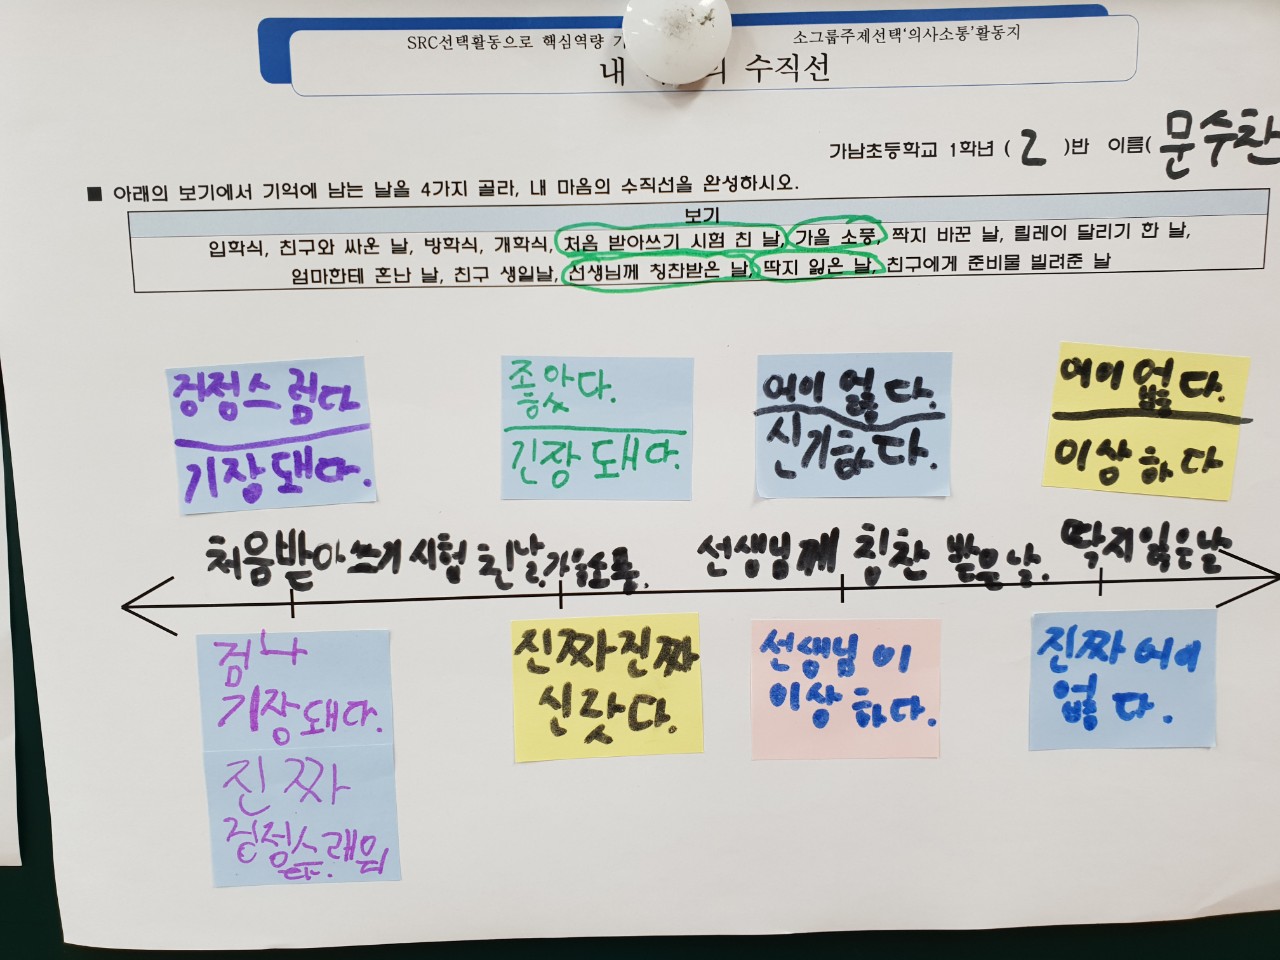 SRC선택활동으로 핵심역량
소그룹주제선택‘의사소통’활동지
내 수직선
가남초등학교 1학년 ( 2 )반 이름( 문수찬
■ 아래의 보기에서 기억에 남는 날을 4가지 골라, 내 마음의 수직선을 완성하시오.
보기
입학식, 친구와 싸운 날, 방학식, 개학식, 처음 받아쓰기 시험 친 날, 가을 소풍, 짝지 바꾼 날, 릴레이 달리기 한 날,
엄마한테 혼난 날, 친구 생일날, 선생님께 칭찬받은 날, 딱지 잃은 날, 친구에게 준비물 빌려준 날
긴장돼다.
기장돼다.
어이 없다.
신기하다.
어이 없다.
이상하다
처음받아쓰기 시험 친날.
가을소풍.
선생님께 칭찬 받은날.
딱지잃은날
기장돼다.
진짜
진짜진짜
신낫다.
선생님이
이상하다.
진짜 어이
없다.